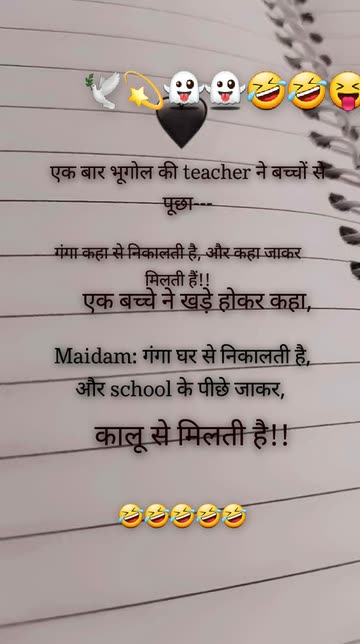 एक बार भूगोल की teacher ने बच्चों से
पूछा---
गंगा कहा से निकालती है, और कहा जाकर
मिलती हैं!!
एक बच्चे ने खड़े होकर कहा,
Maidam: गंगा घर से निकालती है,
और school के पीछे जाकर,
कालू से मिलती है!!